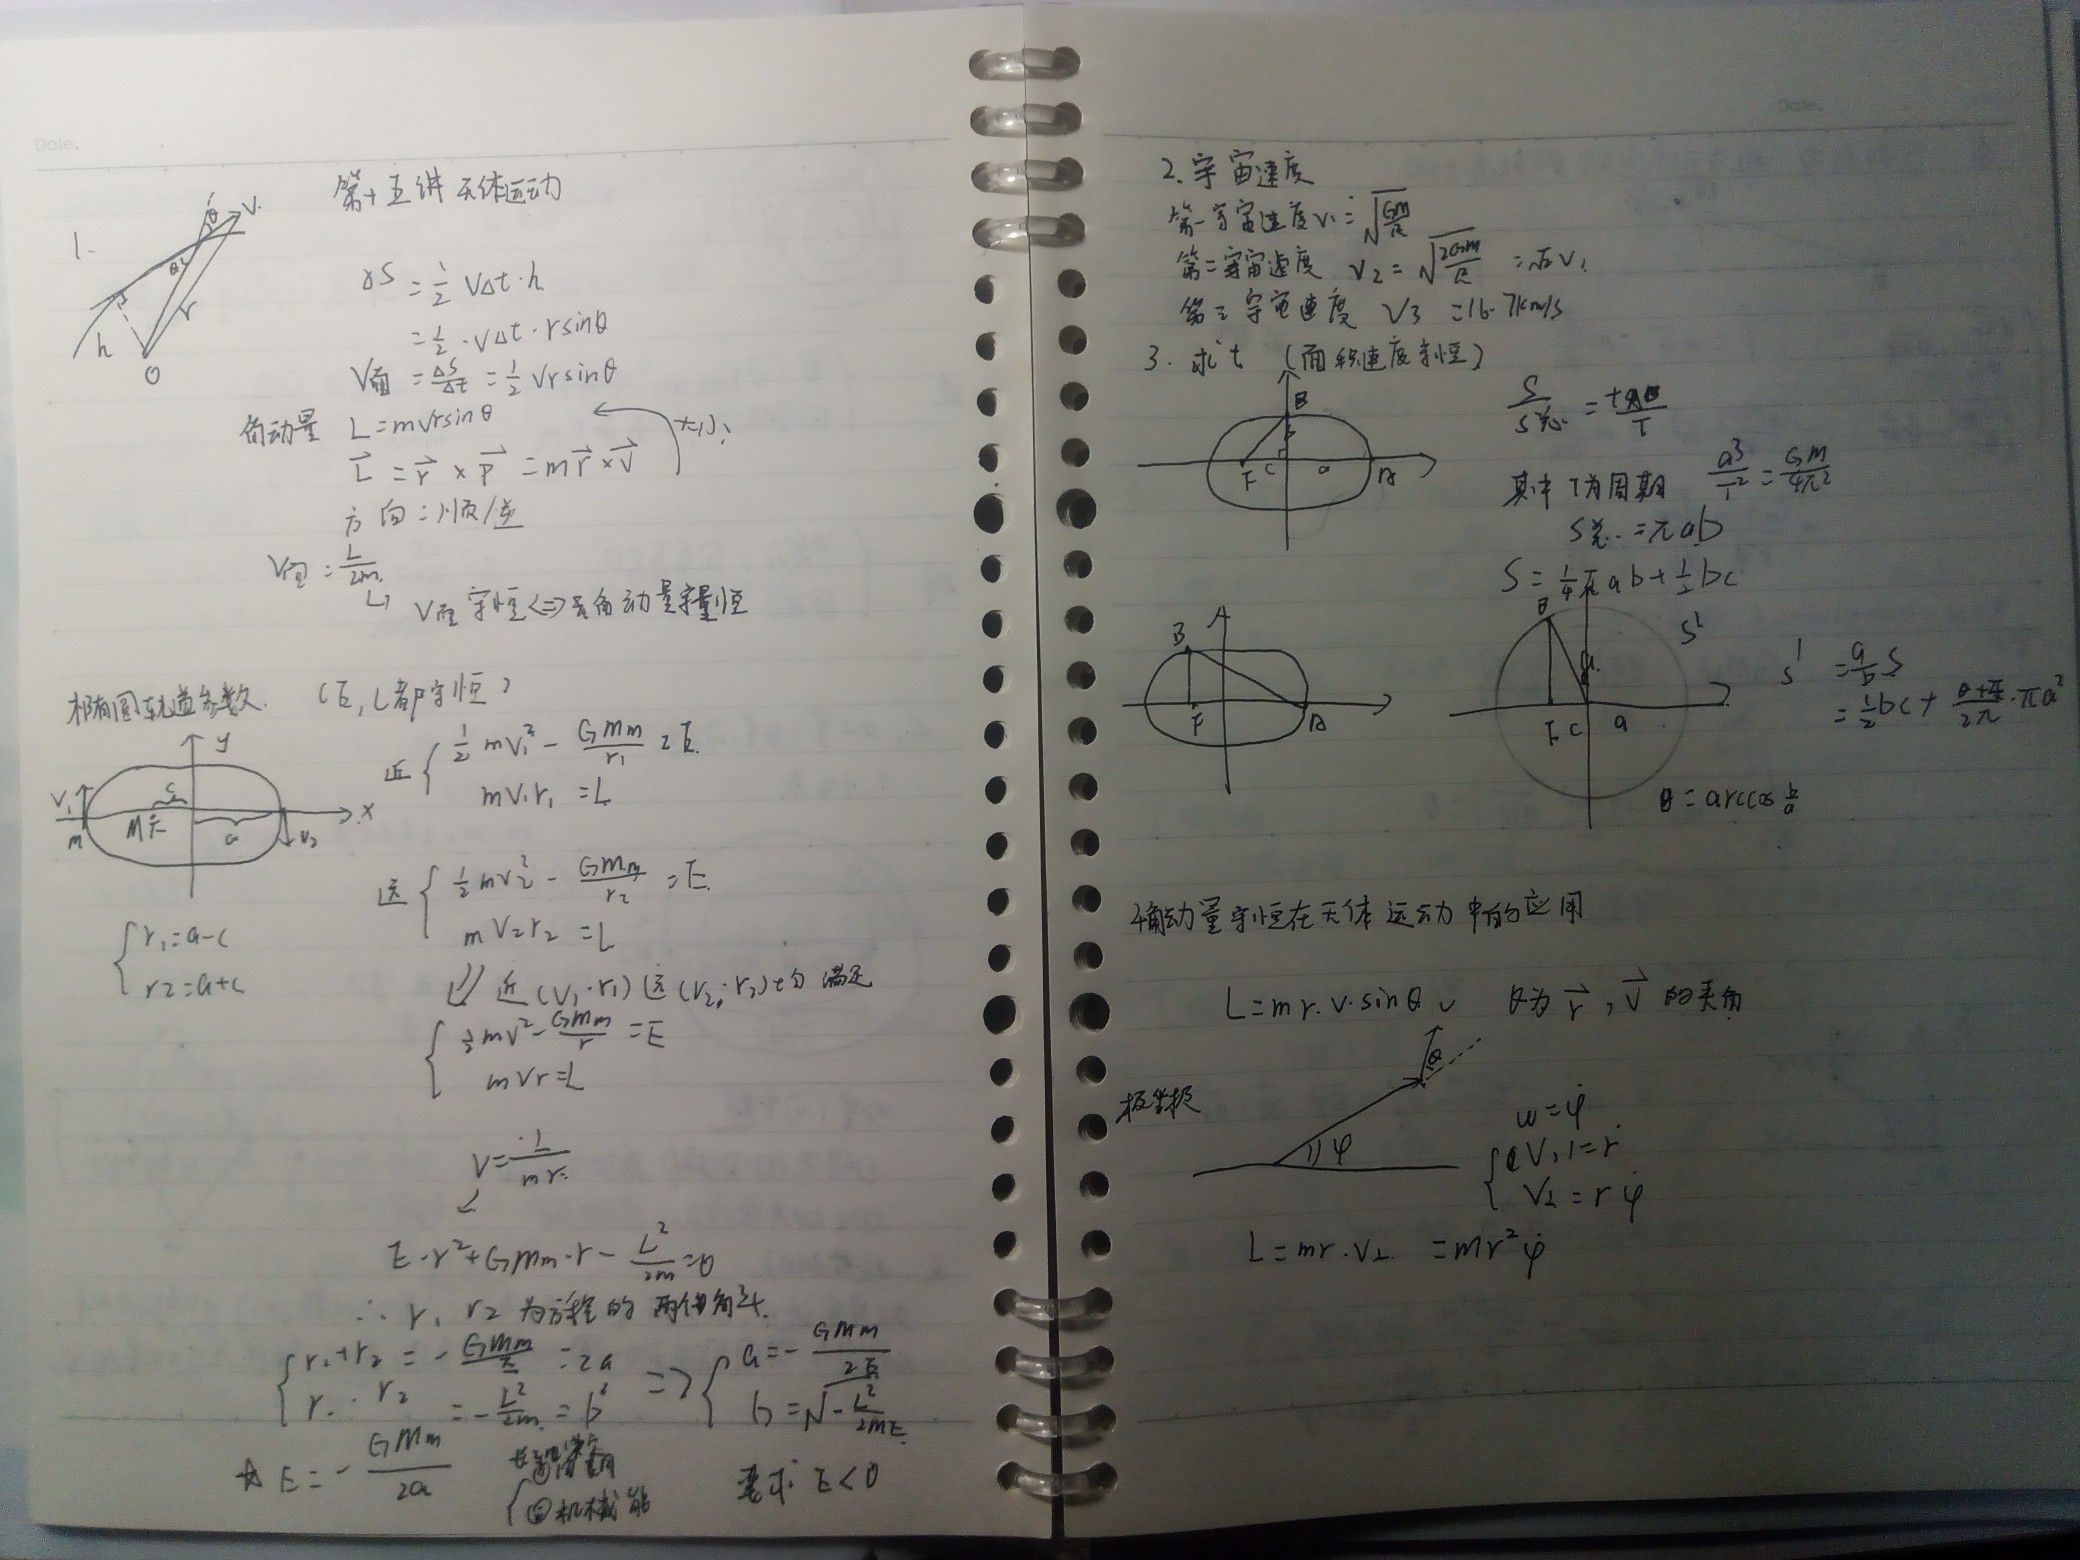 Date.
第十五讲 天体运动
1.
θ V.
θ
r
h
O
ΔS = 1/2 VΔt·h
= 1/2·VΔt·rsinθ
V面 = ΔS/Δt = 1/2 Vrsinθ
角动量 L=mVrsinθ
大小
L⃗ = r⃗ × P⃗ = mr⃗×V⃗
方向:顺/逆
V面 = L/2m
V面守恒<=>角动量守恒
椭圆轨道参数 (E,L都守恒)
y
V1
c
x
m
M
a
V2
近 { 1/2 mv₁² - GMm/r₁ = E
mv₁r₁ = L
远 { 1/2 mv₂² - GMm/r₂ = E
mv₂r₂ = L
{ r₁=a-c
r₂=a+c
近(V₁·r₁)远(V₂·r₂)均满足
{ 1/2 mv² - GMm/r = E
mVr=L
V = L/mr
E·r²+GMm·r - L²/2m =0
∴ r₁ r₂ 为方程的两个解
{ r₁+r₂ = - GMm/E = 2a => { a = - GMm/2E
r₁·r₂ = - L²/2m = b² b = √- L²/2mE
☆ E = - GMm/2a
②机械能
要求 E<0
Date.
2.宇宙速度
第一宇宙速度 V₁ = √GM/R
第二宇宙速度 V₂ = √2GM/R = √2V₁
第三宇宙速度 V3 = 16.7km/s
3. 求t (面积速度守恒)
B
F C a A
S/S总 = tAB/T
其中T为周期 a³/T² = GM/4π²
S总 = πab
S = 1/4πab+1/2bc
B
F A
B
S'
F C a
S' = a/b S
= 1/2bc + θ+π/2/2π·πa²
θ = arccos b/a
4角动量守恒在天体运动中的应用
L=mr·v·sinθ θ为r⃗,v⃗的夹角
θ
极坐标
φ
w=φ̇
{ V∥=ṙ
V⊥=rφ̇
L=mr·V⊥ =mr²φ̇